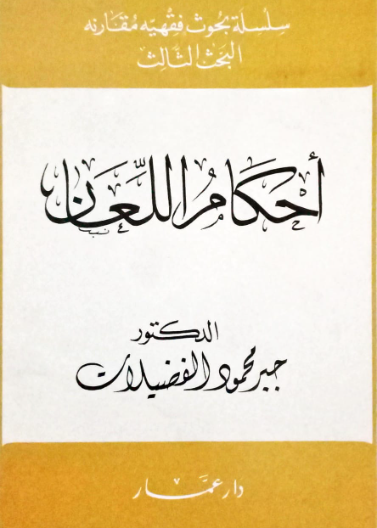 سلسلة بحوث فقهيه مقارنه
البحث الثالث
أحكام اللعان
الدكتور
جبر محمود الفضيلات
دار عمار